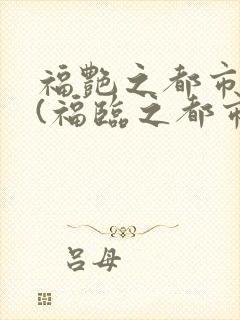 福艷之都市
(福臨之都市
呂母